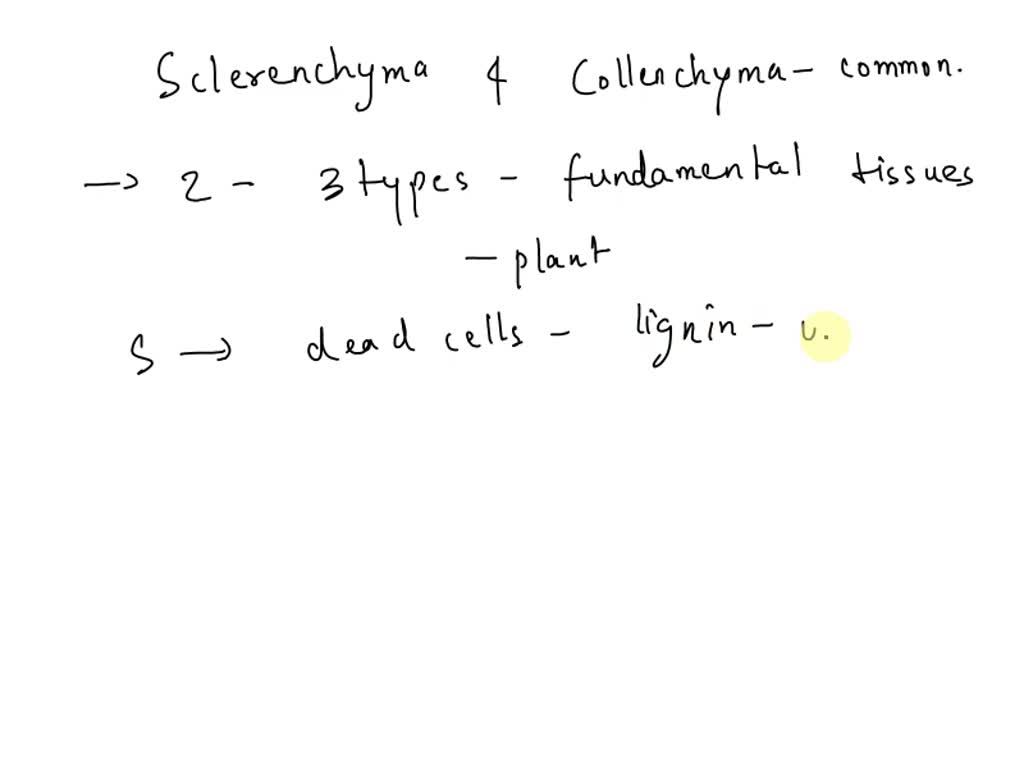 Sclerenchyma & Collenchyma - common.
→ 2 - 3 types - fundamental tissues
- plant
S → dead cells - lignin - u.